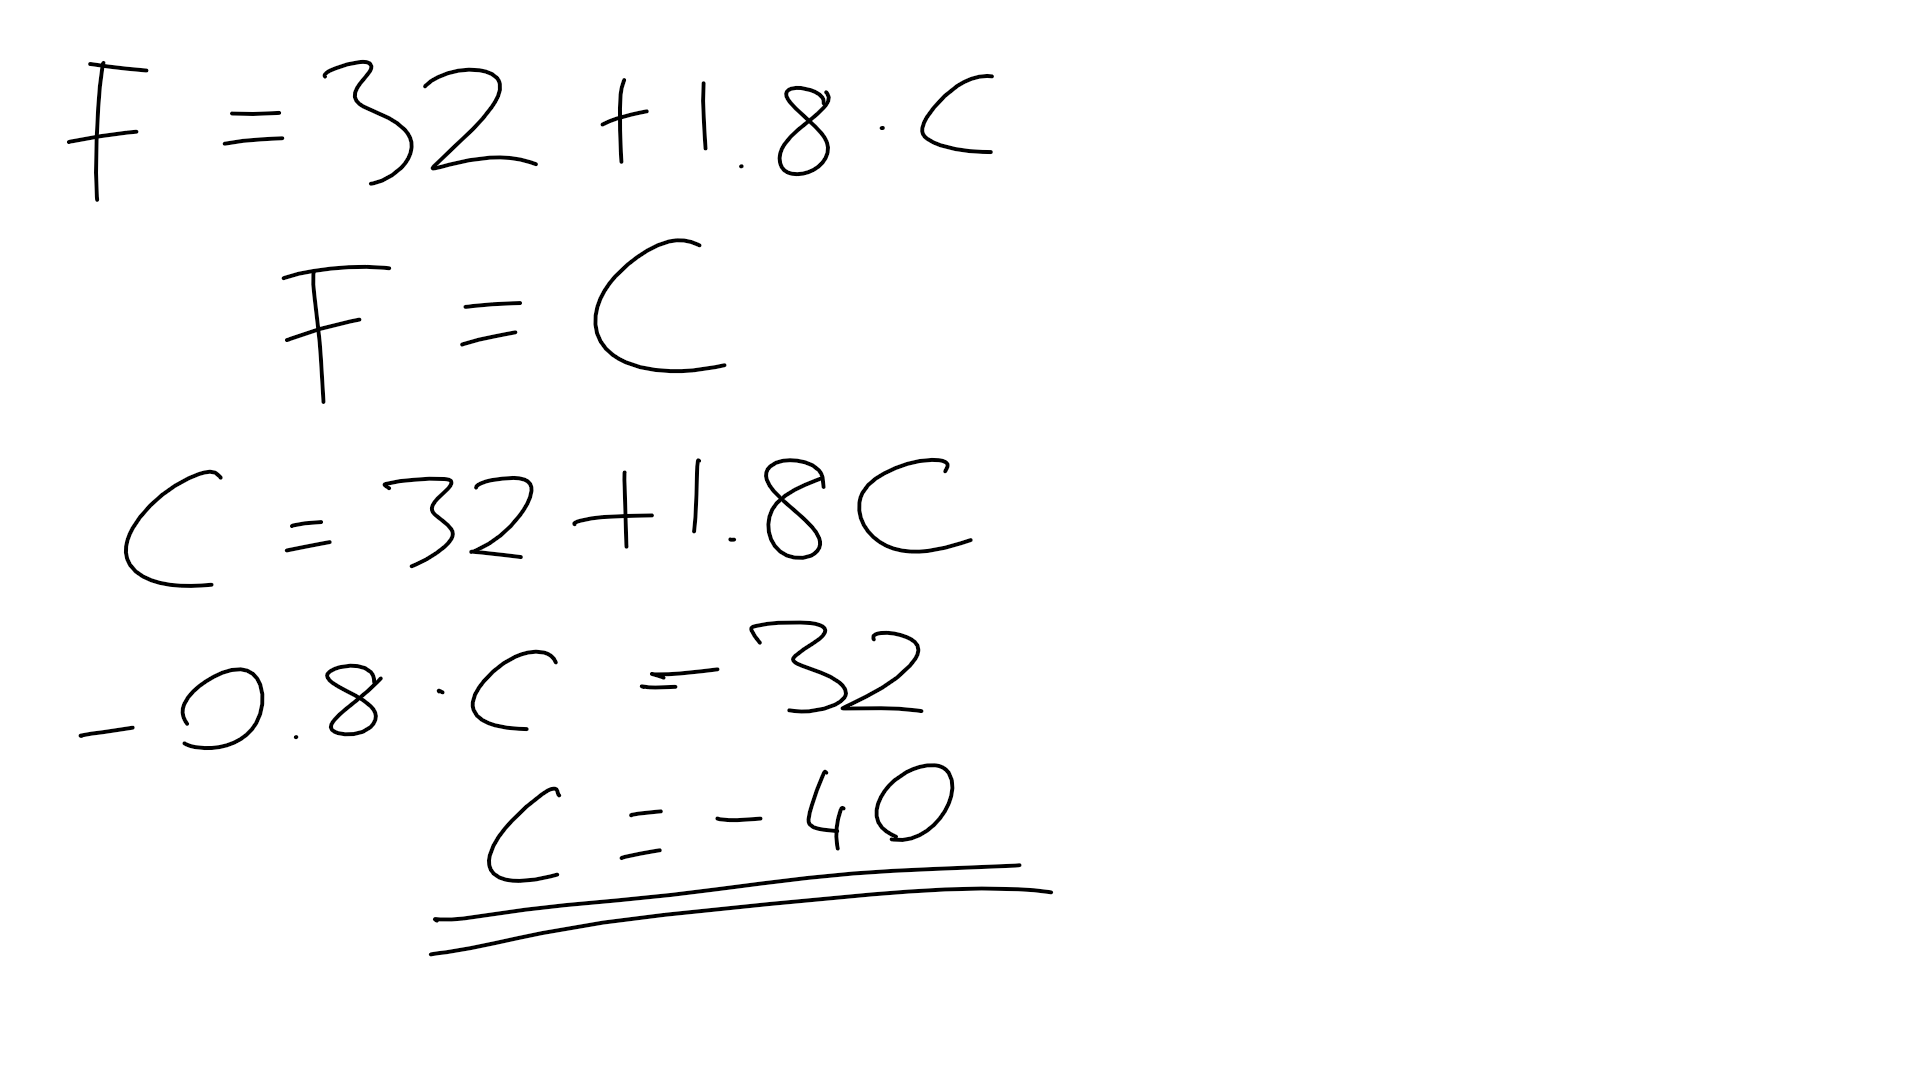 F = 32 + 1.8 · C
F = C
C = 32 + 1.8 C
- 0.8 · C = 32
C = - 40